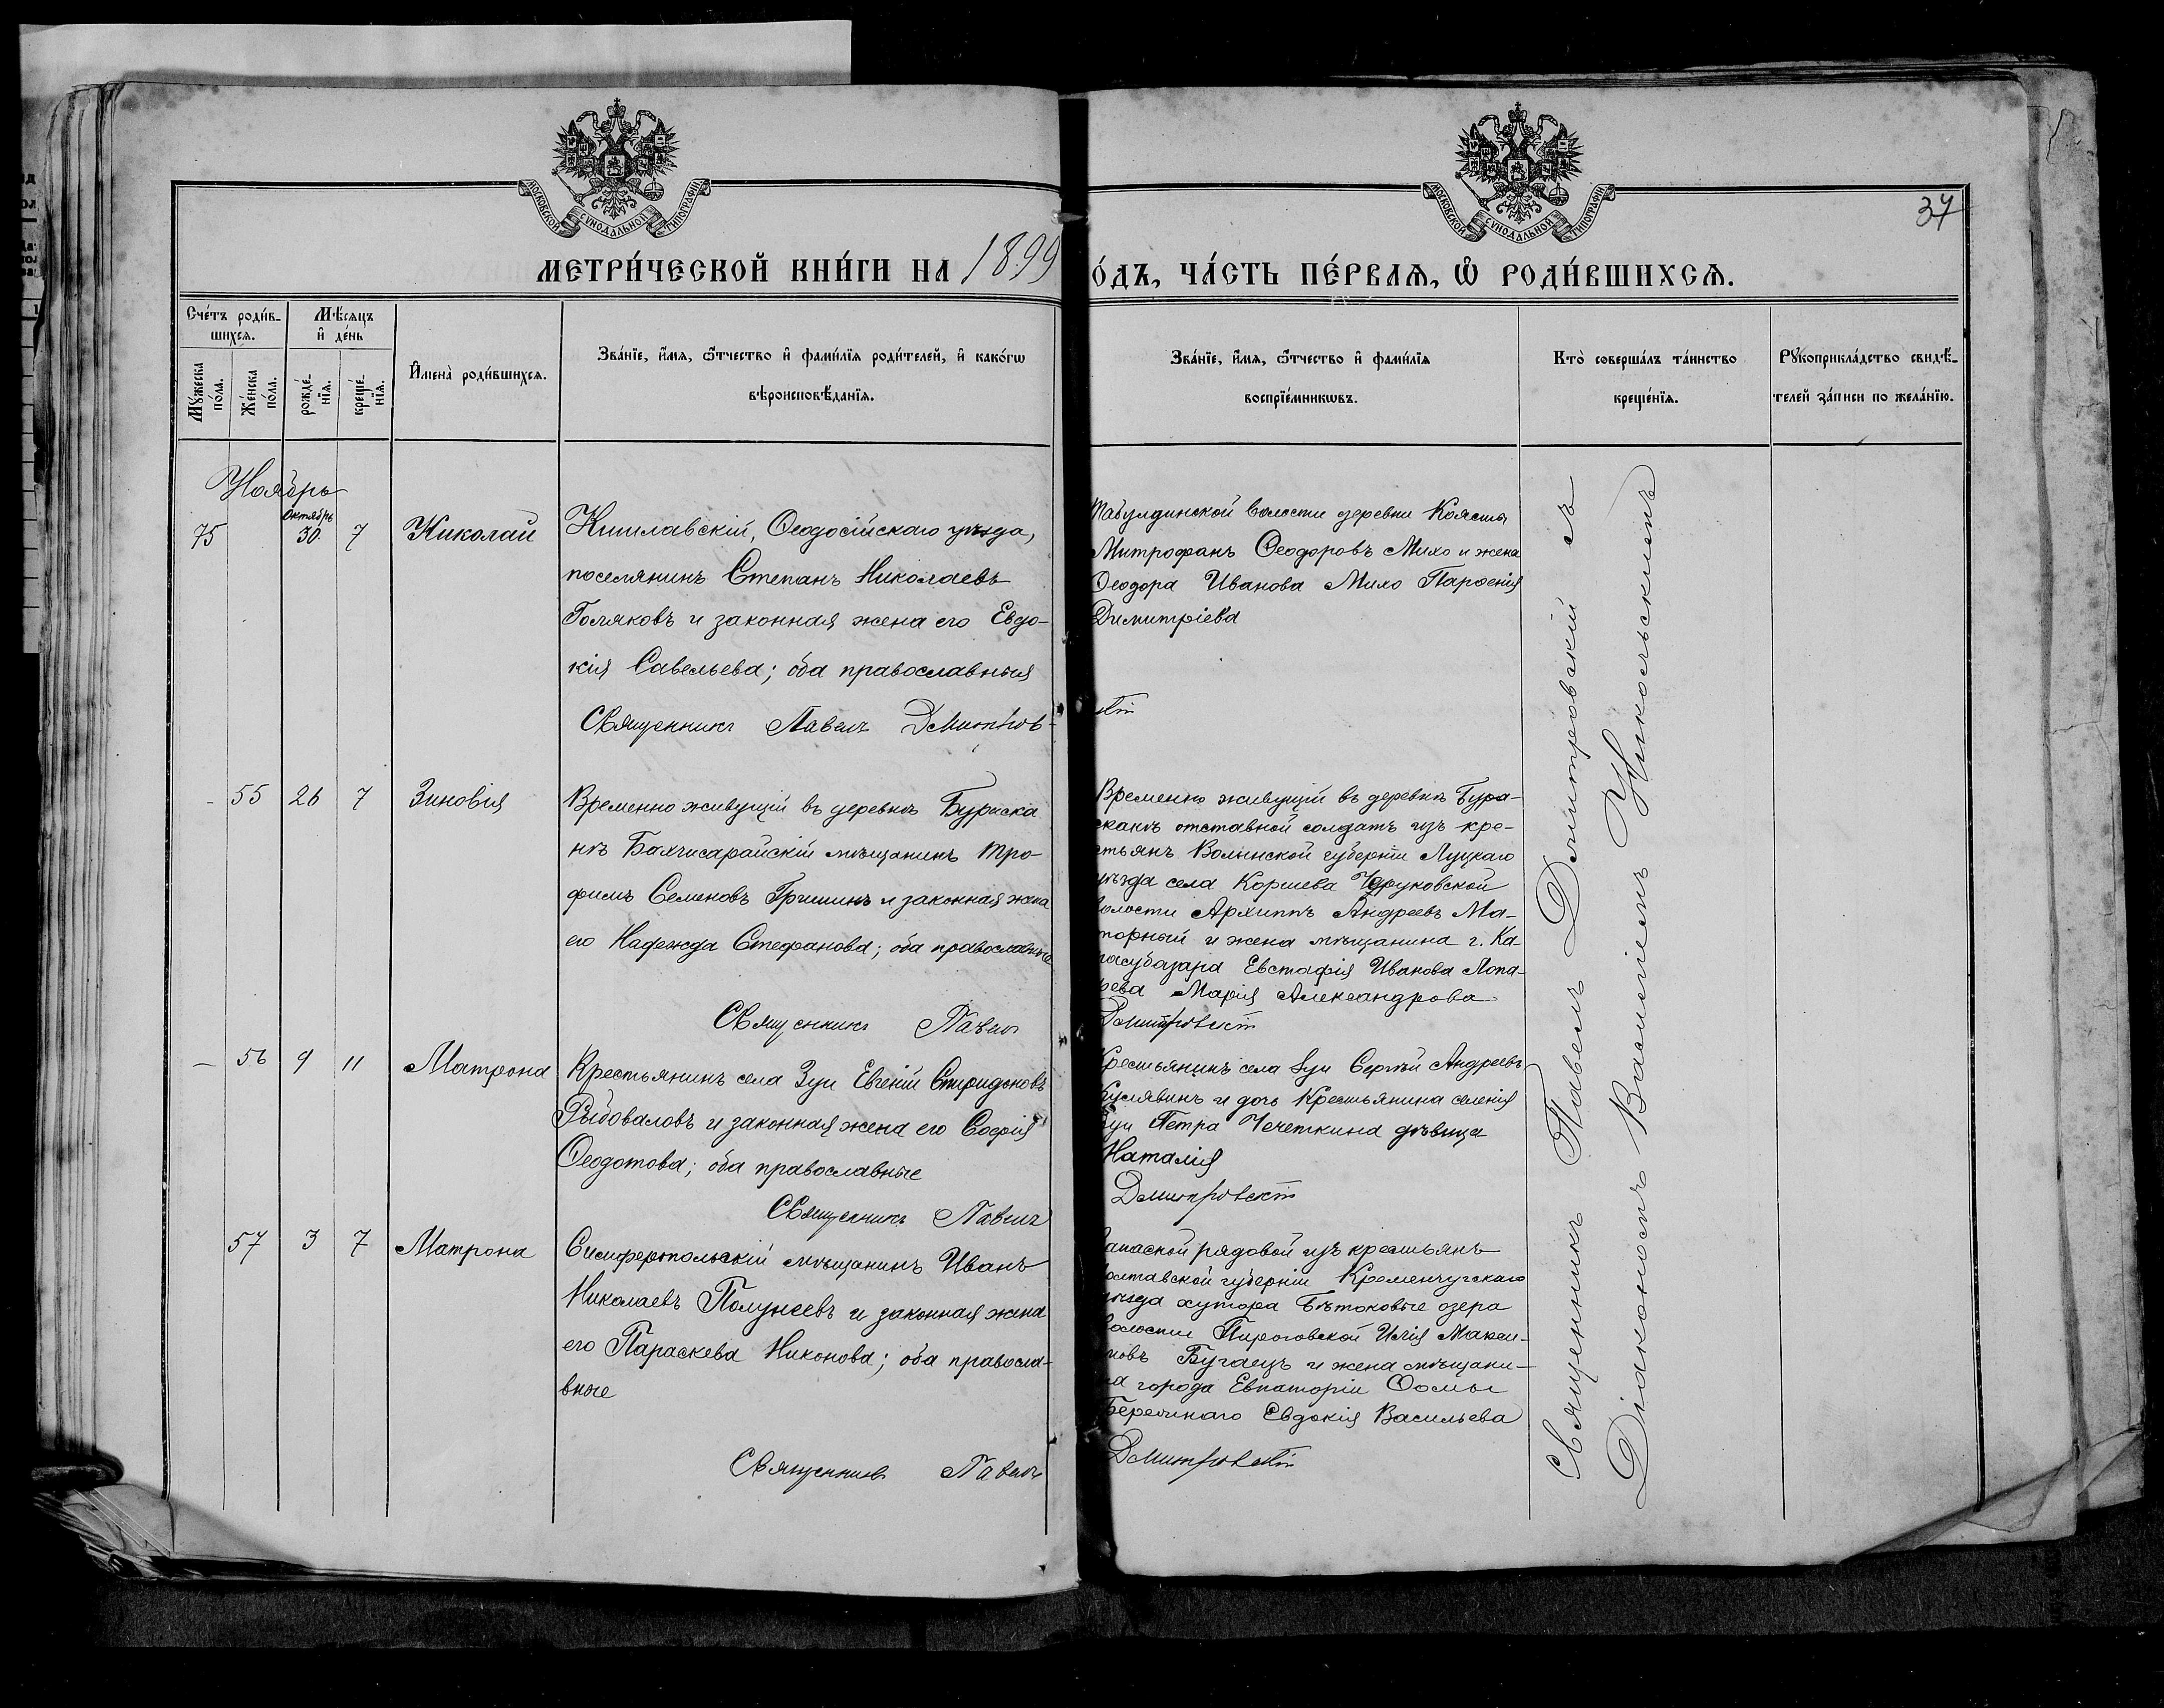 МОСКОВСКОЙ СѴНОДАЛЬНОЙ ТИПОГРАФІИ
МОСКОВСКОЙ СѴНОДАЛЬНОЙ ТИПОГРАФІИ
37
МЕТРИ́ЧЕСКОЙ КНИ́ГИ НА 1899
О́ДЪ, ЧА́СТЬ ПЕ́РВАѦ, Ѡ҆ РОДИ́ВШИХСѦ.
Сче́тъ роди́в-
шихсѧ.
Мꙋ́жеска по́ла.
Же́нска по́ла.
Мѣ́сѧцъ
и҆ де́нь
рожде́-
нїѧ.
креще́-
нїѧ.
И҆мена̀ роди́вшихсѧ.
Зва́нїе, и҆́мѧ, ѻ҆́тчество и҆ фами́лїѧ роди́телей, и҆ како́гѡ
вѣроисповѣ́данїѧ.
Зва́нїе, и҆́мѧ, ѻ҆́тчество и҆ фами́лїѧ
воспрїе́мникѡвъ.
Кто̀ соверша́лъ та́инство
креще́нїѧ.
Рꙋкоприкла́дство свидѣ́-
телей за́писи по жела́нїю.
Ноябрь
Октябрь
75 30 7 Николай
Кишлавскій, Ѳеодосійскаго уѣзда,
поселянинъ Степанъ Николаевъ
Голяковъ и законная жена его Евдо-
кія Савельева; оба православныя
Священникъ Павелъ Дмитров-
Табулдинской волости деревни Коясты
Митрофанъ Ѳеодоровъ Михо и жена
Ѳеодора Иванова Михо Парѳенія
Димитріева
- 55 26 7 Зиновія
Временно живущій въ деревнѣ Бураска
нѣ Бахчисарайскій мѣщанинъ Тро-
фимъ Семеновъ Гришинъ и законная жена
его Надежда Стефанова; оба православные
Священникъ Павелъ
Временно живущій въ деревнѣ Бура-
сканѣ отставной солдатъ изъ кре-
стьянъ Волынской губерніи Луцкаго
уѣзда села Коршева Чаруковской
волости Архиппъ Андреевъ Ма-
торный и жена мѣщанина г. Ка-
расубазара Евстафія Иванова Лопа-
рева Марія Александрова
Дмитровскій
- 56 9 11 Матрона
Крестьянинъ села Зуи Евгеній Спиридоновъ
Рыбоваловъ и законная жена его Софія
Ѳеодотова; оба православные
Священникъ Павелъ
Крестьянинъ села Зуи Сергѣй Андреевъ
и дочь Крестьянина селенія
Зуи Петра Чечеткина дѣвица
Наталія
Дмитровскій
57 3 7 Матрона
Симферопольскій мѣщанинъ Иванъ
Николаевъ Полунеевъ и законная жена
его Параскева Никонова; оба правосла-
вные
Священникъ Павелъ
Запасной рядовой изъ крестьянъ
Полтавской губерніи Кременчугскаго
уѣзда хутора озера
волости Пироговской Илія Макси-
мовъ Бугаецъ и жена мѣщани-
на города Евпаторіи Ѳомы
Евдокія Васильева
Дмитровскій
Священникъ Павелъ Дмитровскій съ
Діакономъ Василіемъ Никольскимъ